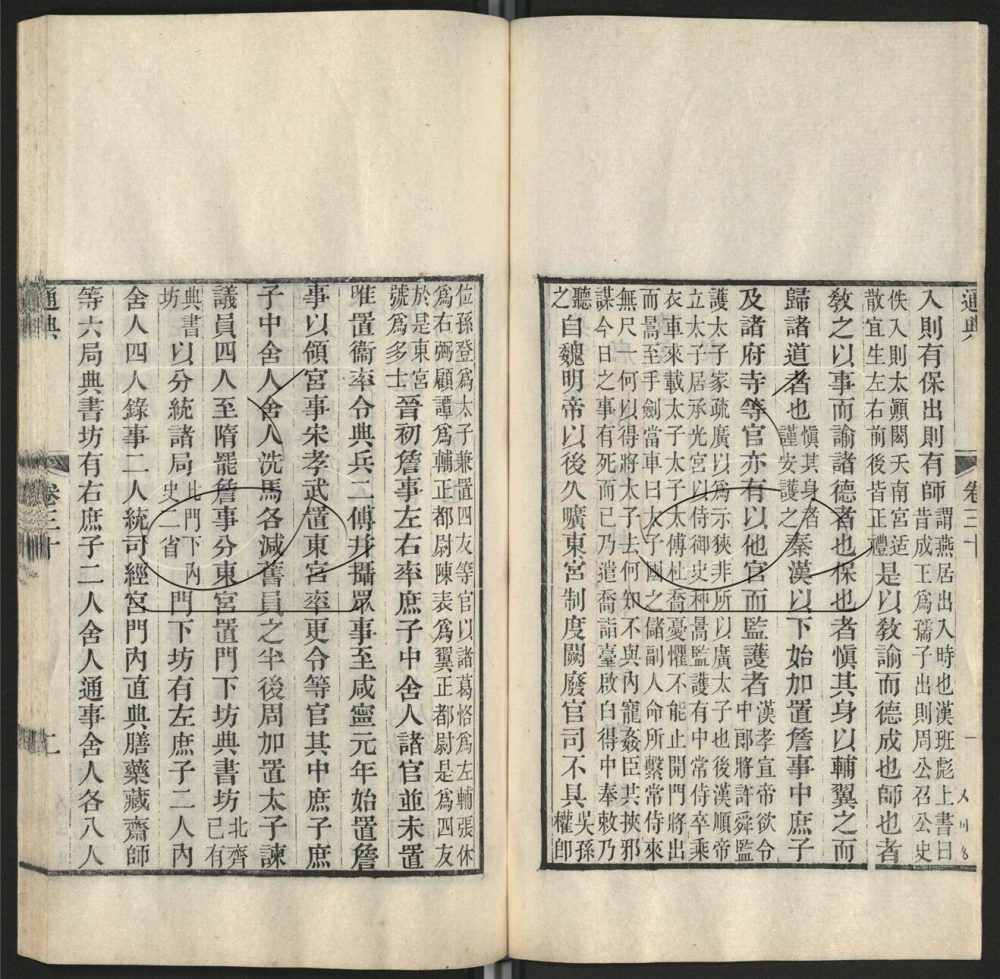 通典
卷三十
一
入則有保出則有師謂燕居出入時也漢班彪上書曰昔成王爲孺子出則周公召公史
佚入則太顛閎夭南宮适散宜生左右前後皆正禮是以敎諭而德成也師也者
敎之以事而諭諸德者也保也者愼其身以輔翼之而
歸諸道者也愼其身者謹安護之秦漢以下始加置詹事中庶子
及諸府寺等官亦有以他官而監護者漢孝宣帝欲令中郞將許舜監
護太子家疏廣以爲示狹非所以廣太子也後漢順帝立太子居承光宮以侍御史种暠監護有中常侍卒乘
衣車來載太子太子太傅杜喬憂懼不能止開門將出而暠至手劍當車曰太子國之儲副人命所繫常侍來
無尺一何以得將太子去何知不與內寵姦臣共挾邪謀今日之事有死而已乃遣喬詣臺啟白得中奉敕乃
聽之自魏明帝以後久曠東宮制度闕廢官司不具吳孫權卽
位孫登爲太子兼置四友等官以諸葛恪爲左輔張休爲右弼顧譚爲輔正都尉陳表爲翼正都尉是爲四友
於是東宮號爲多士晉初詹事左右率庶子中舍人諸官並未置
唯置衞率令典兵二傅并攝眾事至咸寧元年始置詹
事以領宮事宋孝武置東宮率更令等官其中庶子庶
子中舍人舍人洗馬各減舊員之半後周加置太子諫
議員四人至隋罷詹事分東宮置門下坊典書坊北齊已有
典書坊以分統諸局比門下內史二省門下坊有左庶子二人內
舍人四人錄事二人統司經宮門內直典膳藥藏齋師
等六局典書坊有右庶子二人舍人通事舍人各八人
通典
卷三十